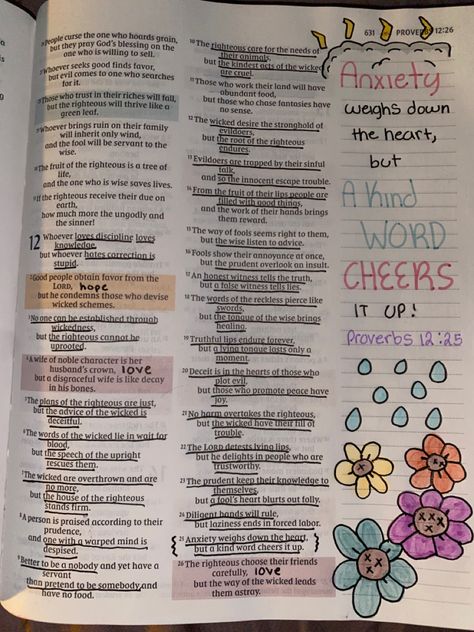 631 PROVERBS 12:26
People curse the one who hoards grain,
but they pray God's blessing on the
one who is willing to sell.
Whoever seeks good finds favor,
but evil comes to one who searches
for it.
Those who trust in their riches will fall,
but the righteous will thrive like a
green leaf.
Whoever brings ruin on their family
will inherit only wind,
and the fool will be servant to the
wise.
The fruit of the righteous is a tree of
life,
and the one who is wise saves lives.
If the righteous receive their due on
earth,
how much more the ungodly and
the sinner!
12 Whoever loves discipline loves
knowledge,
but whoever hates correction is
stupid.
2 Good people obtain favor from the
LORD, hope
but he condemns those who devise
wicked schemes.
3 No one can be established through
wickedness,
but the righteous cannot be
uprooted.
4 A wife of noble character is her
husband's crown, love
but a disgraceful wife is like decay
in his bones.
5 The plans of the righteous are just,
but the advice of the wicked is
deceitful.
6 The words of the wicked lie in wait for
blood,
but the speech of the upright
rescues them.
7 The wicked are overthrown and are
no more,
but the house of the righteous
stands firm.
8 A person is praised according to their
prudence,
and one with a warped mind is
despised.
9 Better to be a nobody and yet have a
servant
than pretend to be somebody and
have no food.
10 The righteous care for the needs of
their animals,
but the kindest acts of the wicked
are cruel.
11 Those who work their land will have
abundant food,
but those who chase fantasies have
no sense.
12 The wicked desire the stronghold of
evildoers,
but the root of the righteous
endures.
13 Evildoers are trapped by their sinful
talk,
and so the innocent escape trouble.
14 From the fruit of their lips people are
filled with good things,
and the work of their hands brings
them reward.
15 The way of fools seems right to them,
but the wise listen to advice.
16 Fools show their annoyance at once,
but the prudent overlook an insult.
17 An honest witness tells the truth,
but a false witness tells lies.
18 The words of the reckless pierce like
swords,
but the tongue of the wise brings
healing.
19 Truthful lips endure forever,
but a lying tongue lasts only a
moment.
20 Deceit is in the hearts of those who
plot evil,
but those who promote peace have
joy.
21 No harm overtakes the righteous,
but the wicked have their fill of
trouble.
22 The LORD detests lying lips,
but he delights in people who are
trustworthy.
23 The prudent keep their knowledge to
themselves,
but a fool's heart blurts out folly.
24 Diligent hands will rule,
but laziness ends in forced labor.
25 Anxiety weighs down the heart,
but a kind word cheers it up.
26 The righteous choose their friends
carefully, love
but the way of the wicked leads
them astray.
Anxiety
weighs down
the heart,
but
A Kind
WORD
CHEERS
IT UP!
Proverbs 12:25